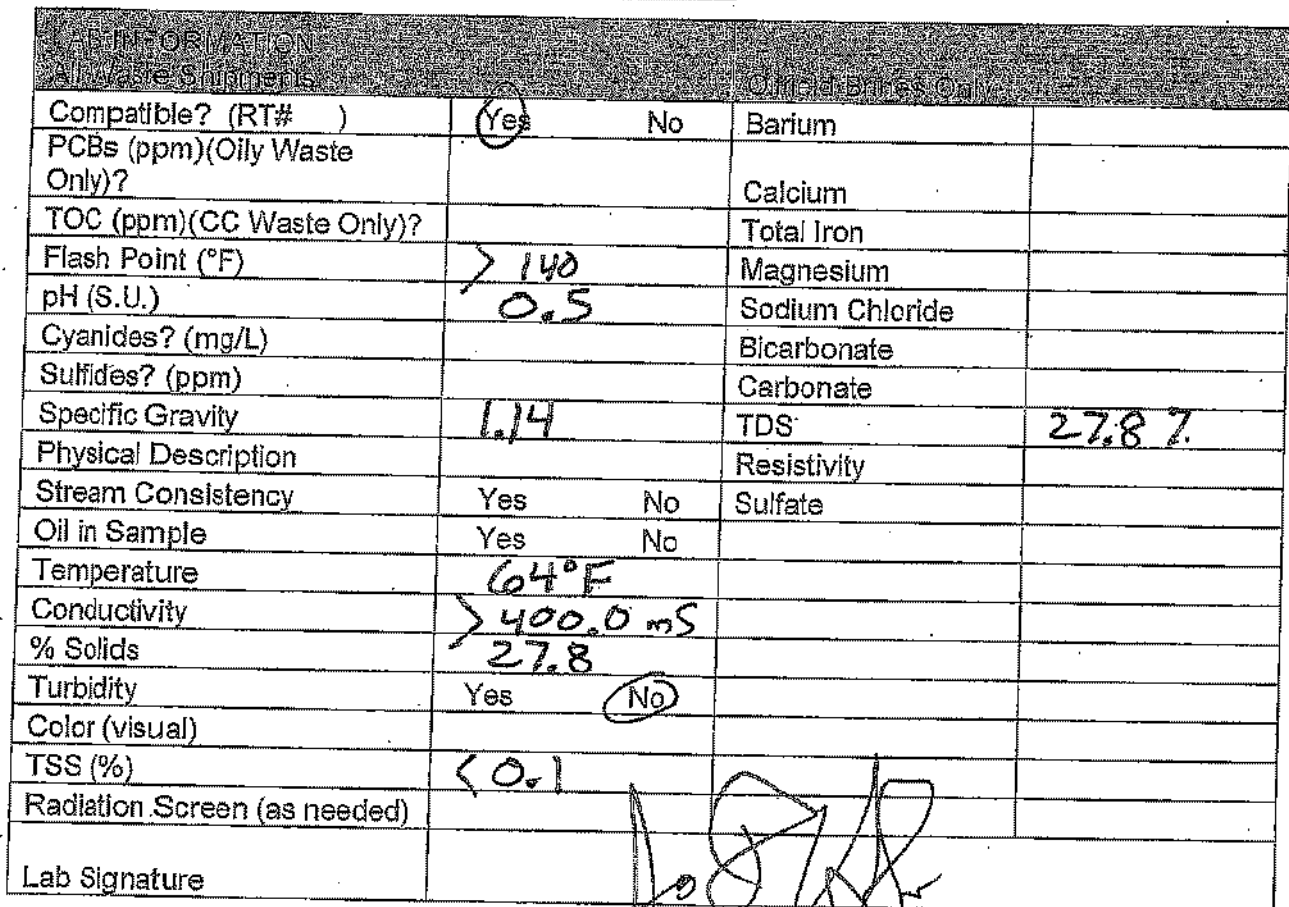 LAB INFORMATION
All Waste Shipments Oilfield Brines Only
Compatible? (RT# ) Yes No Barium
PCBs (ppm)(Oily Waste
Only)? Calcium
TOC (ppm)(CC Waste Only)? Total Iron
Flash Point (°F) > 140 Magnesium
pH (S.U.) 0.5 Sodium Chloride
Cyanides? (mg/L) Bicarbonate
Sulfides? (ppm) Carbonate
Specific Gravity 1.14 TDS 27.8 %
Physical Description Resistivity
Stream Consistency Yes No Sulfate
Oil in Sample Yes No
Temperature 64°F
Conductivity > 400.0 mS
% Solids 27.8
Turbidity Yes No
Color (visual)
TSS (%) < 0.1
Radiation Screen (as needed)
Lab Signature